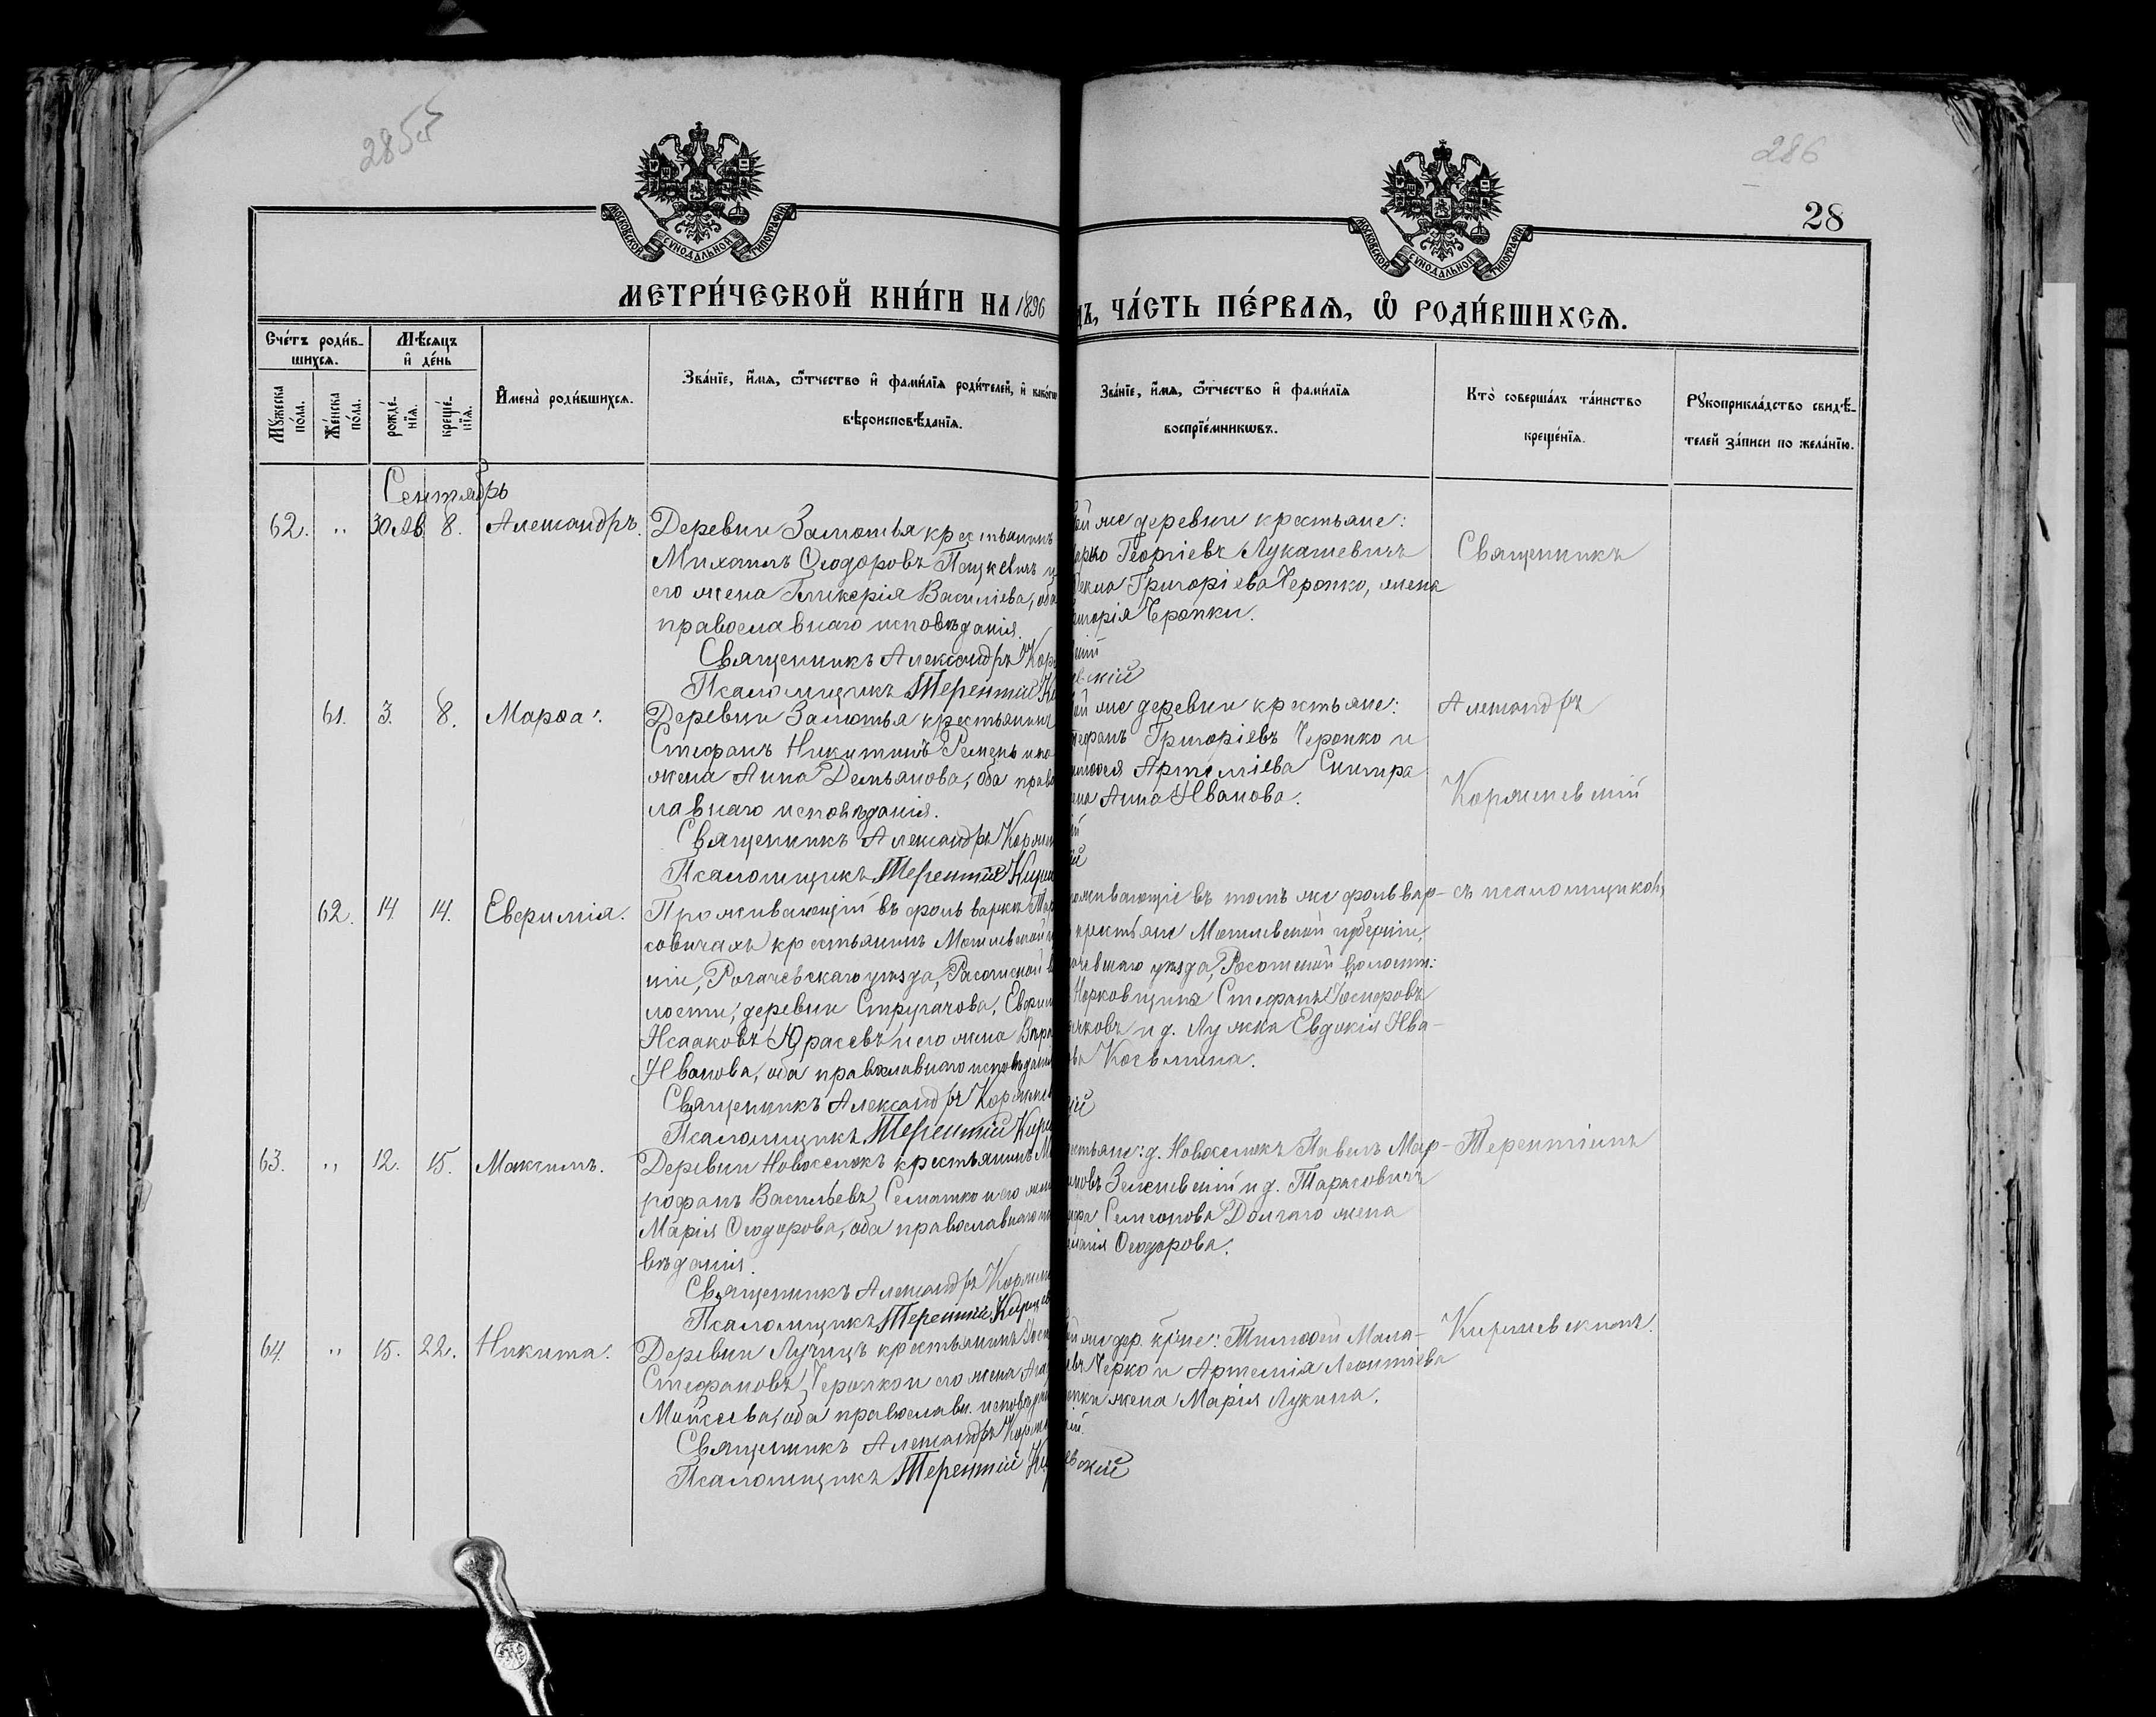 285об
286
28
МОСКОВСКОЙ СѴНОДАЛЬНОЙ ТИПОГРАФІИ
МОСКОВСКОЙ СѴНОДАЛЬНОЙ ТИПОГРАФІИ
МЕТРИ́ЧЕСКОЙ КНИ́ГИ НА 1896
ДЪ, ЧА́СТЬ ПЕ́РВАѦ, Ѿ РОДИ́ВШИХСѦ.
Сче́тъ роди́в-
шихсѧ.
Мѣ́сѧцъ
и҆ де́нь
Мꙋ́жеска по́ла.
Же́нска по́ла.
рожде́-
нїѧ.
креще́-
нїѧ.
И҆мена̀ роди́вшихсѧ.
Зва́нїе, и҆́мѧ, ѻ҆́тчество и҆ фами́лїѧ роди́телей, и҆ како́гѡ
вѣроисповѣ́данїѧ.
Зва́нїе, и҆́мѧ, ѻ҆́тчество и҆ фами́лїѧ
воспрїе́мникѡвъ.
Кто̀ соверша́лъ та́инство
креще́нїѧ.
Рꙋкоприкла́дство свидѣ́-
телей за́писи по жела́нїю.
Сентябрь
62. " 30 Ав. 8. Александръ.
Деревни Замостья крестьянинъ
Михаилъ Ѳеодоровъ Пацкевичъ и
его жена Гликерія Василіева, оба
православнаго исповѣданія.
Священникъ Александръ Кор
Псаломщикъ Терентій Ки
ой же деревни крестьяне:
арко Георгіевъ Лукашевичъ
екла Григоріева Черопко, жена
ригорія Черопки.
евскій
Священникъ
61. 3. 8. Марѳа.
Деревни Замостья крестьянинъ
Стефанъ Никитинъ Ремезъ и его
жена Анна Демьянова, оба право
лавнаго исповѣданія.
Священникъ Александръ Коржен
Псаломщикъ Терентій Кирш
ой же деревни крестьяне:
тефанъ Григоріевъ Черопко и
Артеміева
ена Анна Иванова.
ій
Александръ
Корженевскій
62. 14. 14. Евфимія.
Проживающій въ фольваркѣ Тар
совичахъ крестьянинъ Могилевской г
ніи, Рогачевскаго уѣзда, во
лости, деревни Стругачова, Евфим
Исааковъ Юрасевъ и его жена Вѣра
Иванова, оба православнаго исповѣданія
Священникъ Александръ Корженев
Псаломщикъ Терентій Кирш
оживающіе въ томъ же фольвар-
крестьяне Могилевской губерніи,
ачевскаго уѣзда, волости:
Стефанъ Іосифовъ
яковъ и д. Лужка Евдокія Ива-
ова
ій
съ псаломщикомъ
63. " 12. 15. Максимъ.
Деревни Новоселокъ крестьянинъ М
рофанъ Васильевъ Сематко и его жена
Марія Ѳеодорова, оба православнаго испо
вѣданія.
Священникъ Александръ Коржене
Псаломщикъ Терентій Киршев
естьяне: д. Новоселокъ Павелъ Мар-
новъ и д. Тарасовичъ
Семеонова Долгаго жена
Ѳеодорова.
Терентіемъ
64. " 15. 22. Никита.
Деревни Лучицъ крестьянинъ Іоси
Стефановъ Черопко и его жена Ага
Моисеева, оба православн. исповѣдан
Священникъ Александръ Корже
Псаломщикъ Терентій Ки
ой же дер. кр-не: Тимоѳей Мала-
евъ Черко и Артемія Леонтіева
опки жена Марія Лукина.
ій
евскій
Киршевскимъ.